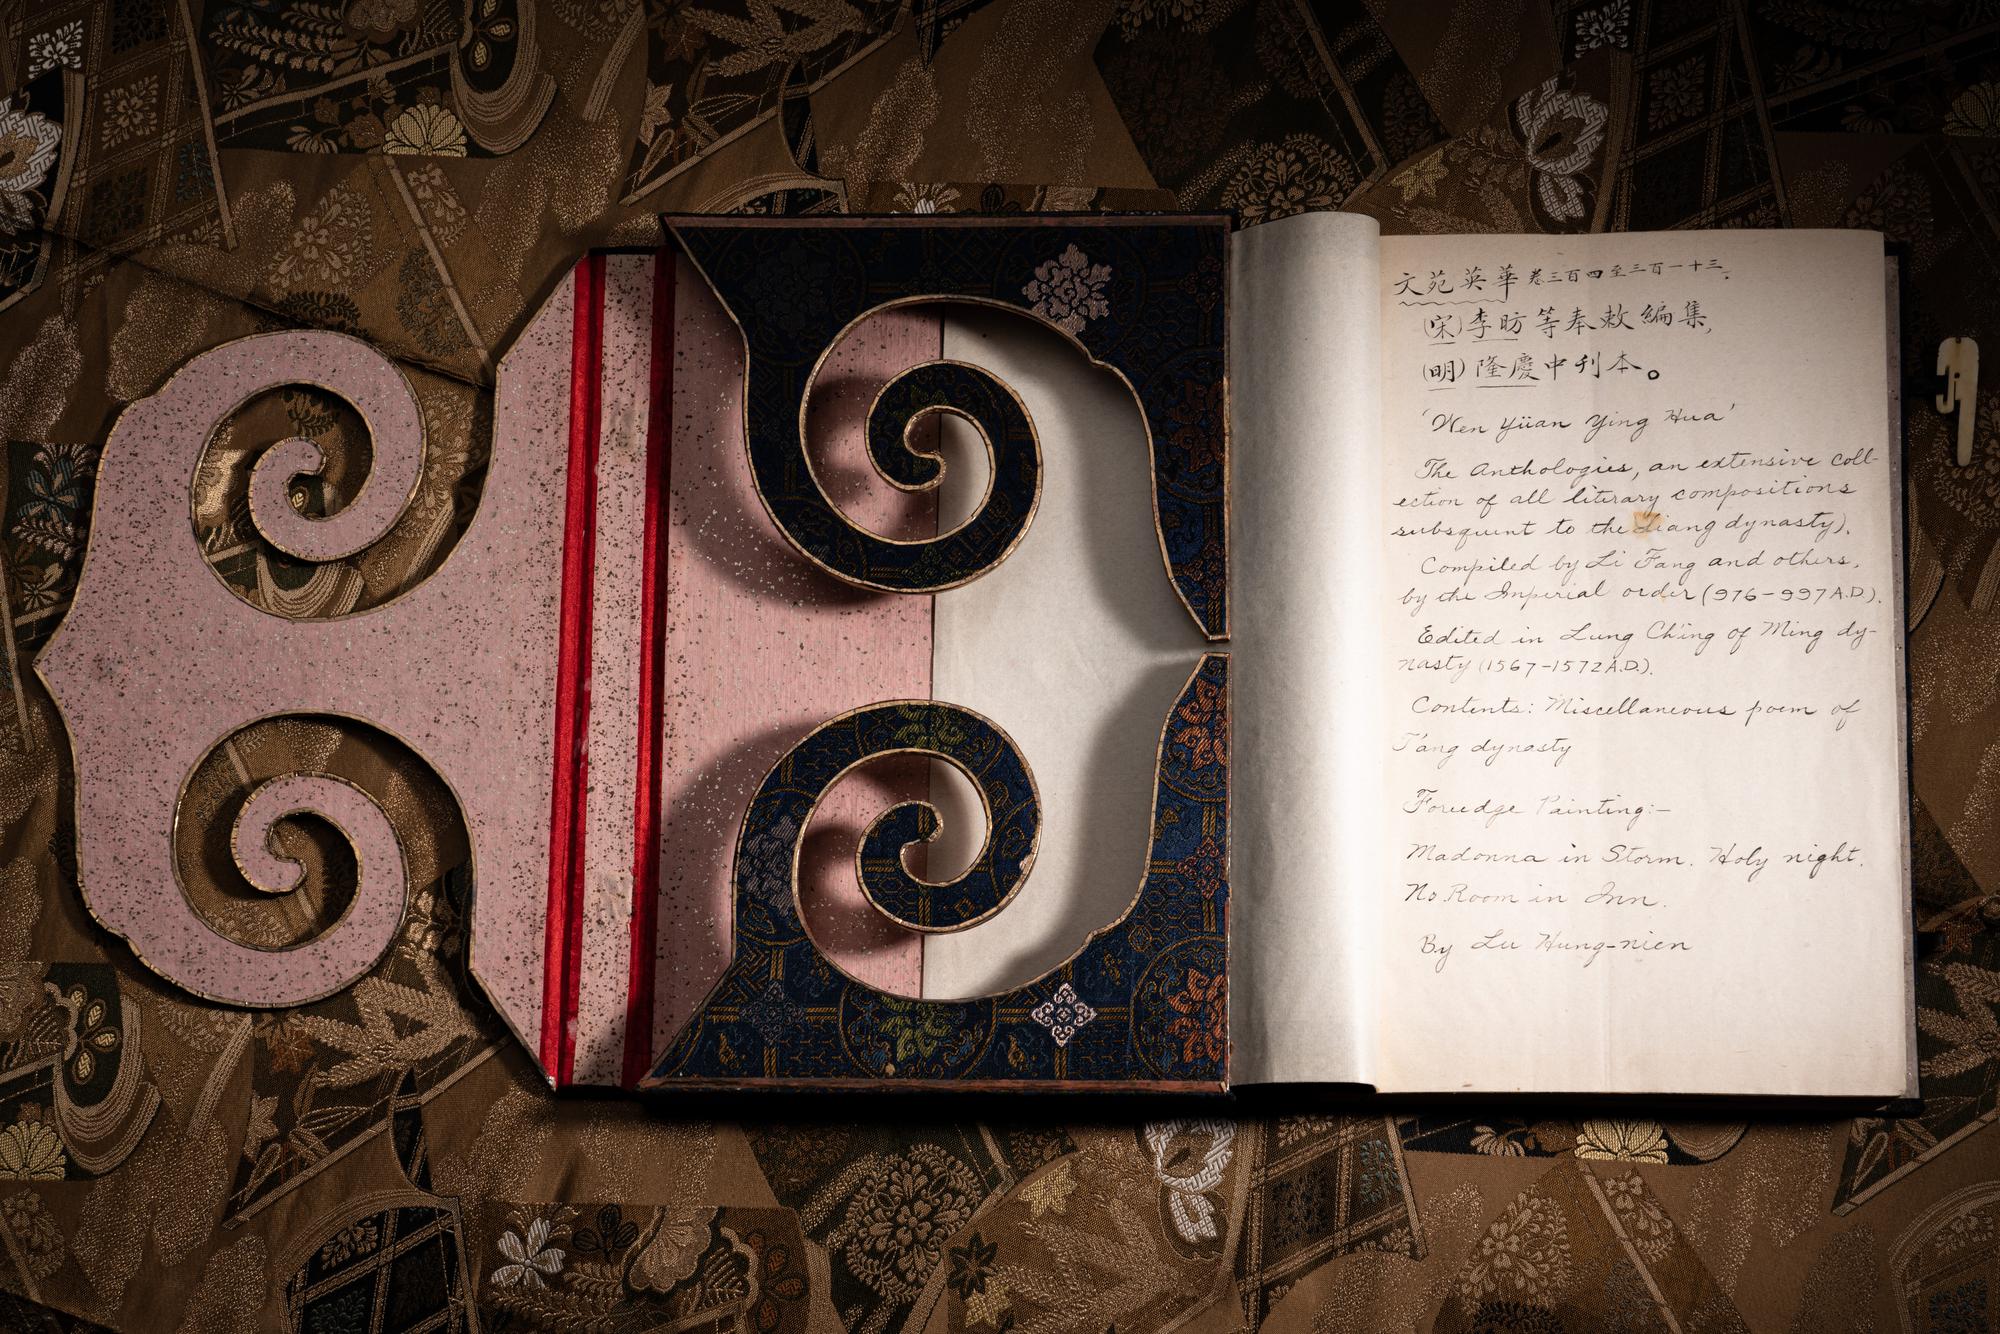 文苑英華 卷三百四至三百一十三.
(宋)李昉等奉敕編集,
(明)隆慶中刊本。
'Wen Yüan Ying Hua'
The Anthologies, an extensive coll-
ection of all literary compositions
subsquent to the Liang dynasty).
Compiled by Li Fang and others,
by the Imperial order (976-997A.D.).
Edited in Lung Ch'ing of Ming dy-
nasty (1567-1572A.D.).
Contents: Miscellaneous poem of
T'ang dynasty
Foredge Painting:-
Madonna in Storm. Holy night.
No Room in Inn.
By Lu Hung-nien